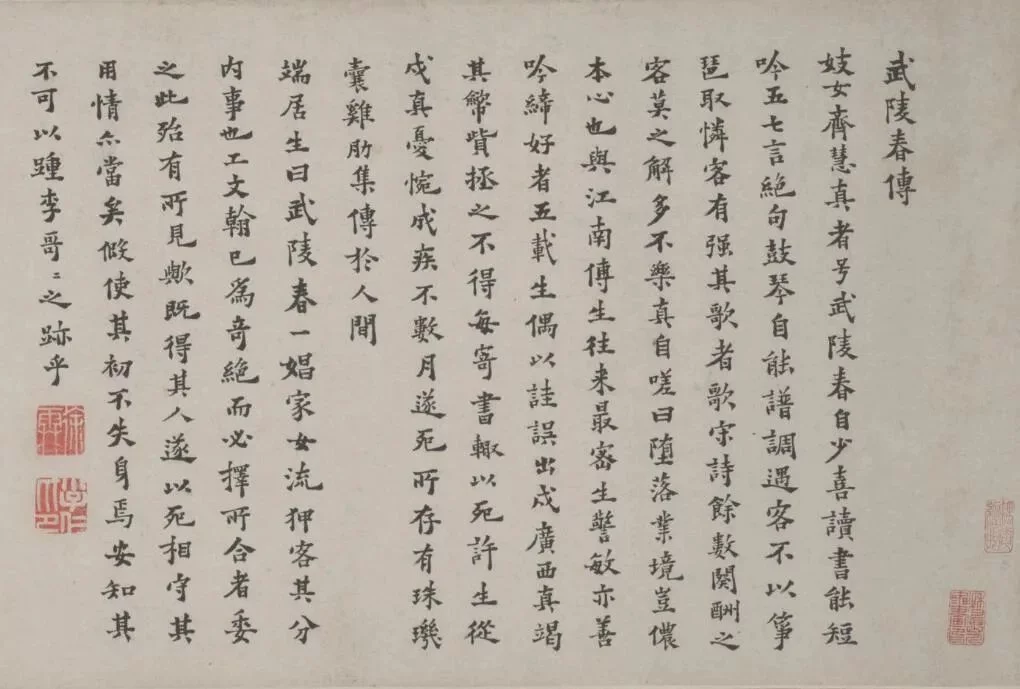 武陵春傳
妓女齊慧真者号武陵春自少喜讀書能短
吟五七言絕句鼓琴自能譜調遇客不以箏
琶取憐客有强其歌者歌宋詩餘數闋酬之
客莫之解多不樂真自嗟曰墮落業境豈儂
本心也與江南傅生往来最密生警敏亦善
吟締好者五載生偶以詿誤出戍廣西真竭
其幣貲拯之不得每寄書輙以死許生從
戍真憂惋成疾不數月遂死所存有珠璣
囊雞肋集傳於人間
端居生曰武陵春一娼家女流狎客其分
内事也工文翰已為奇絕而必擇所合者委
之此殆有所見歟既得其人遂以死相守其
用情亦當矣假使其初不失身焉安知其
不可以踵李哥〻之跡乎
徐霖